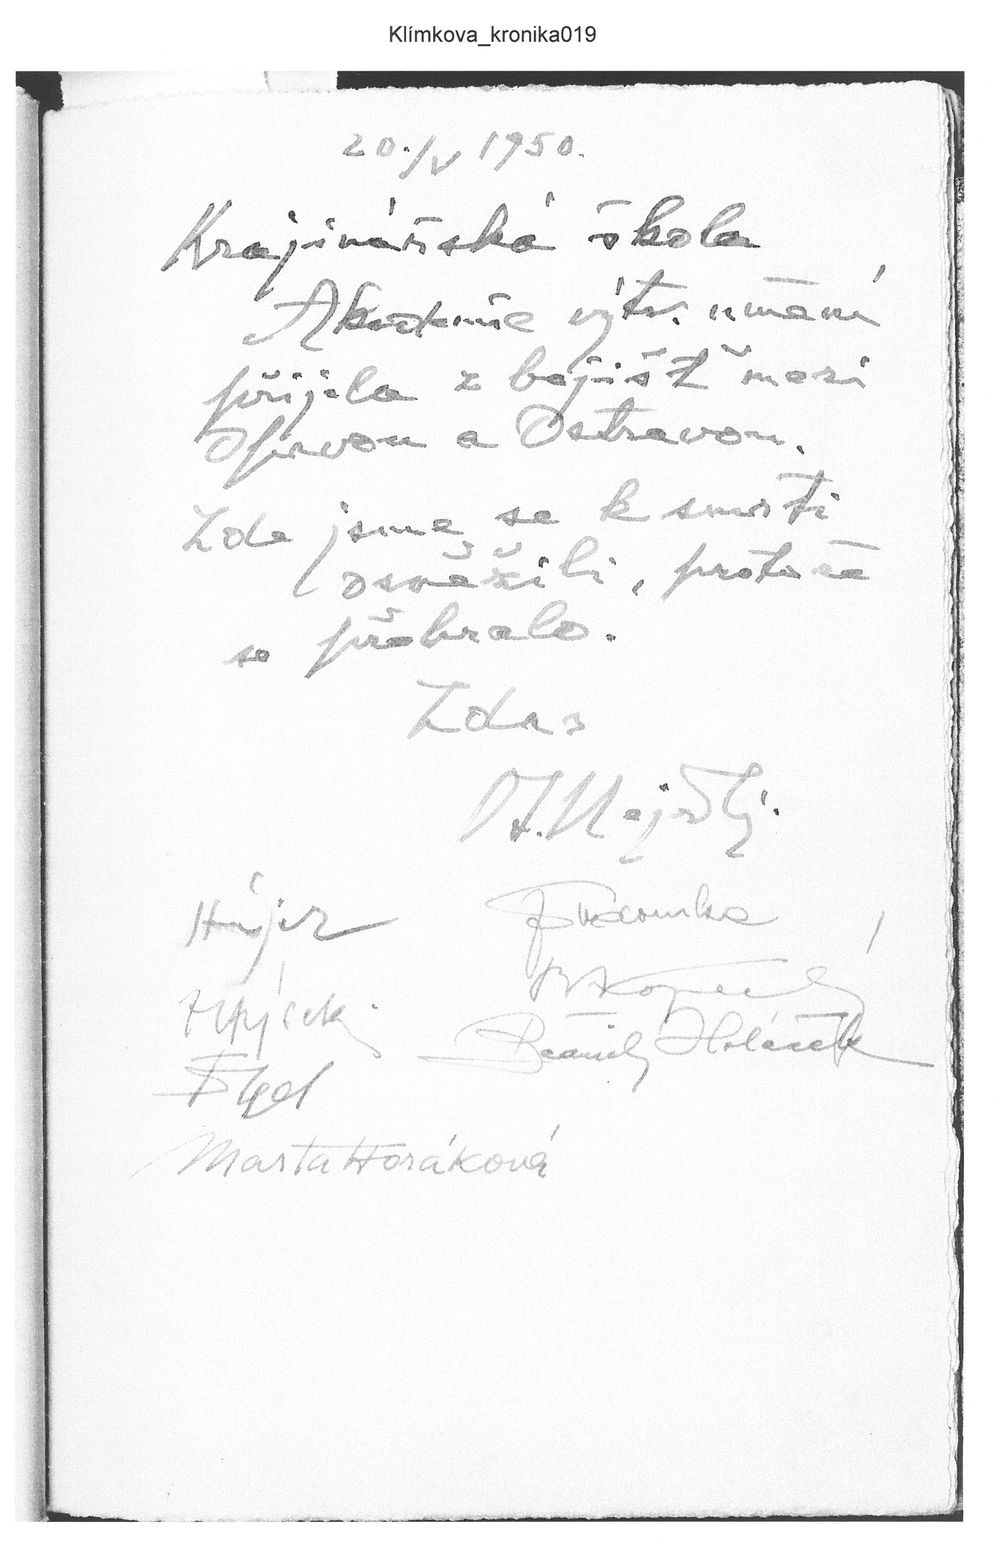 Klímkova_kronika019
20./V 1950.
Krajinářská škola
Akademie výtv. umění
přijela z bojišť mezi
Opavou a Ostravou.
Zde jsme se k smrti
osvěžili, protože
se přebralo.
Zdař
O. Nejedlý.
Hájer
Kopecký
Holáček
Marta Horáková